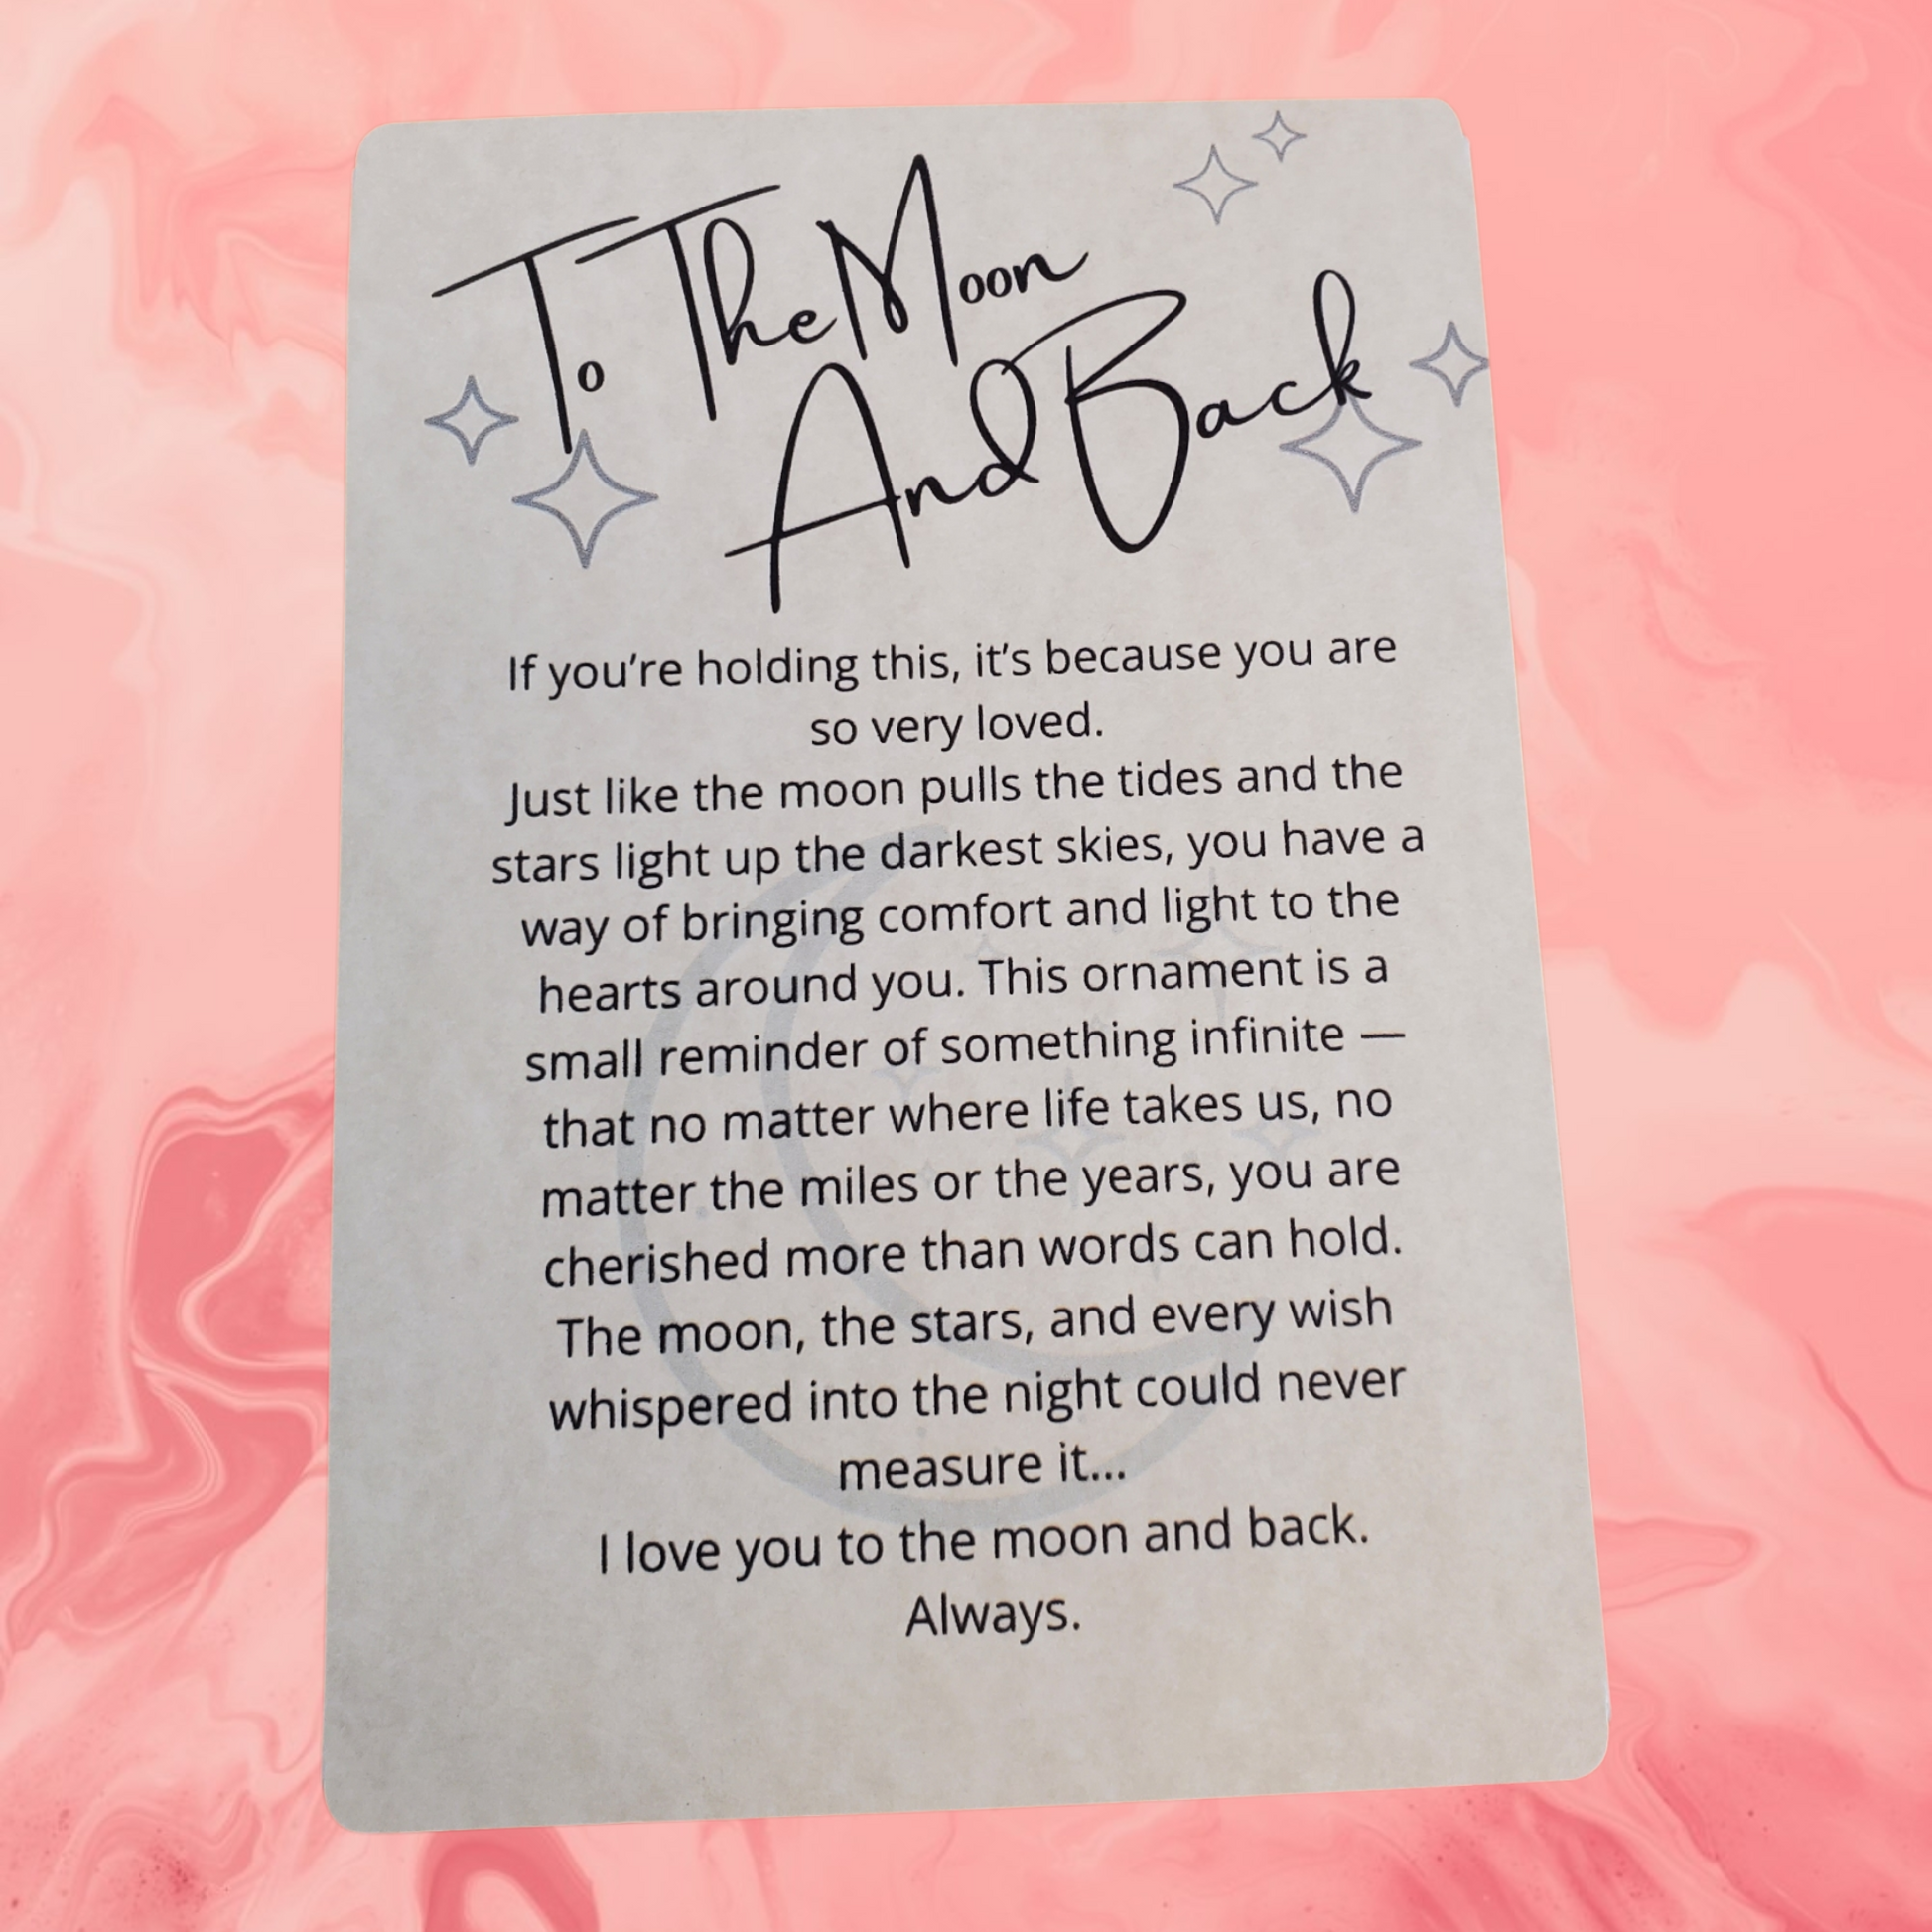 To The Moon
And Back
If you’re holding this, it’s because you are
so very loved.
Just like the moon pulls the tides and the
stars light up the darkest skies, you have a
way of bringing comfort and light to the
hearts around you. This ornament is a
small reminder of something infinite —
that no matter where life takes us, no
matter the miles or the years, you are
cherished more than words can hold.
The moon, the stars, and every wish
whispered into the night could never
measure it...
I love you to the moon and back.
Always.